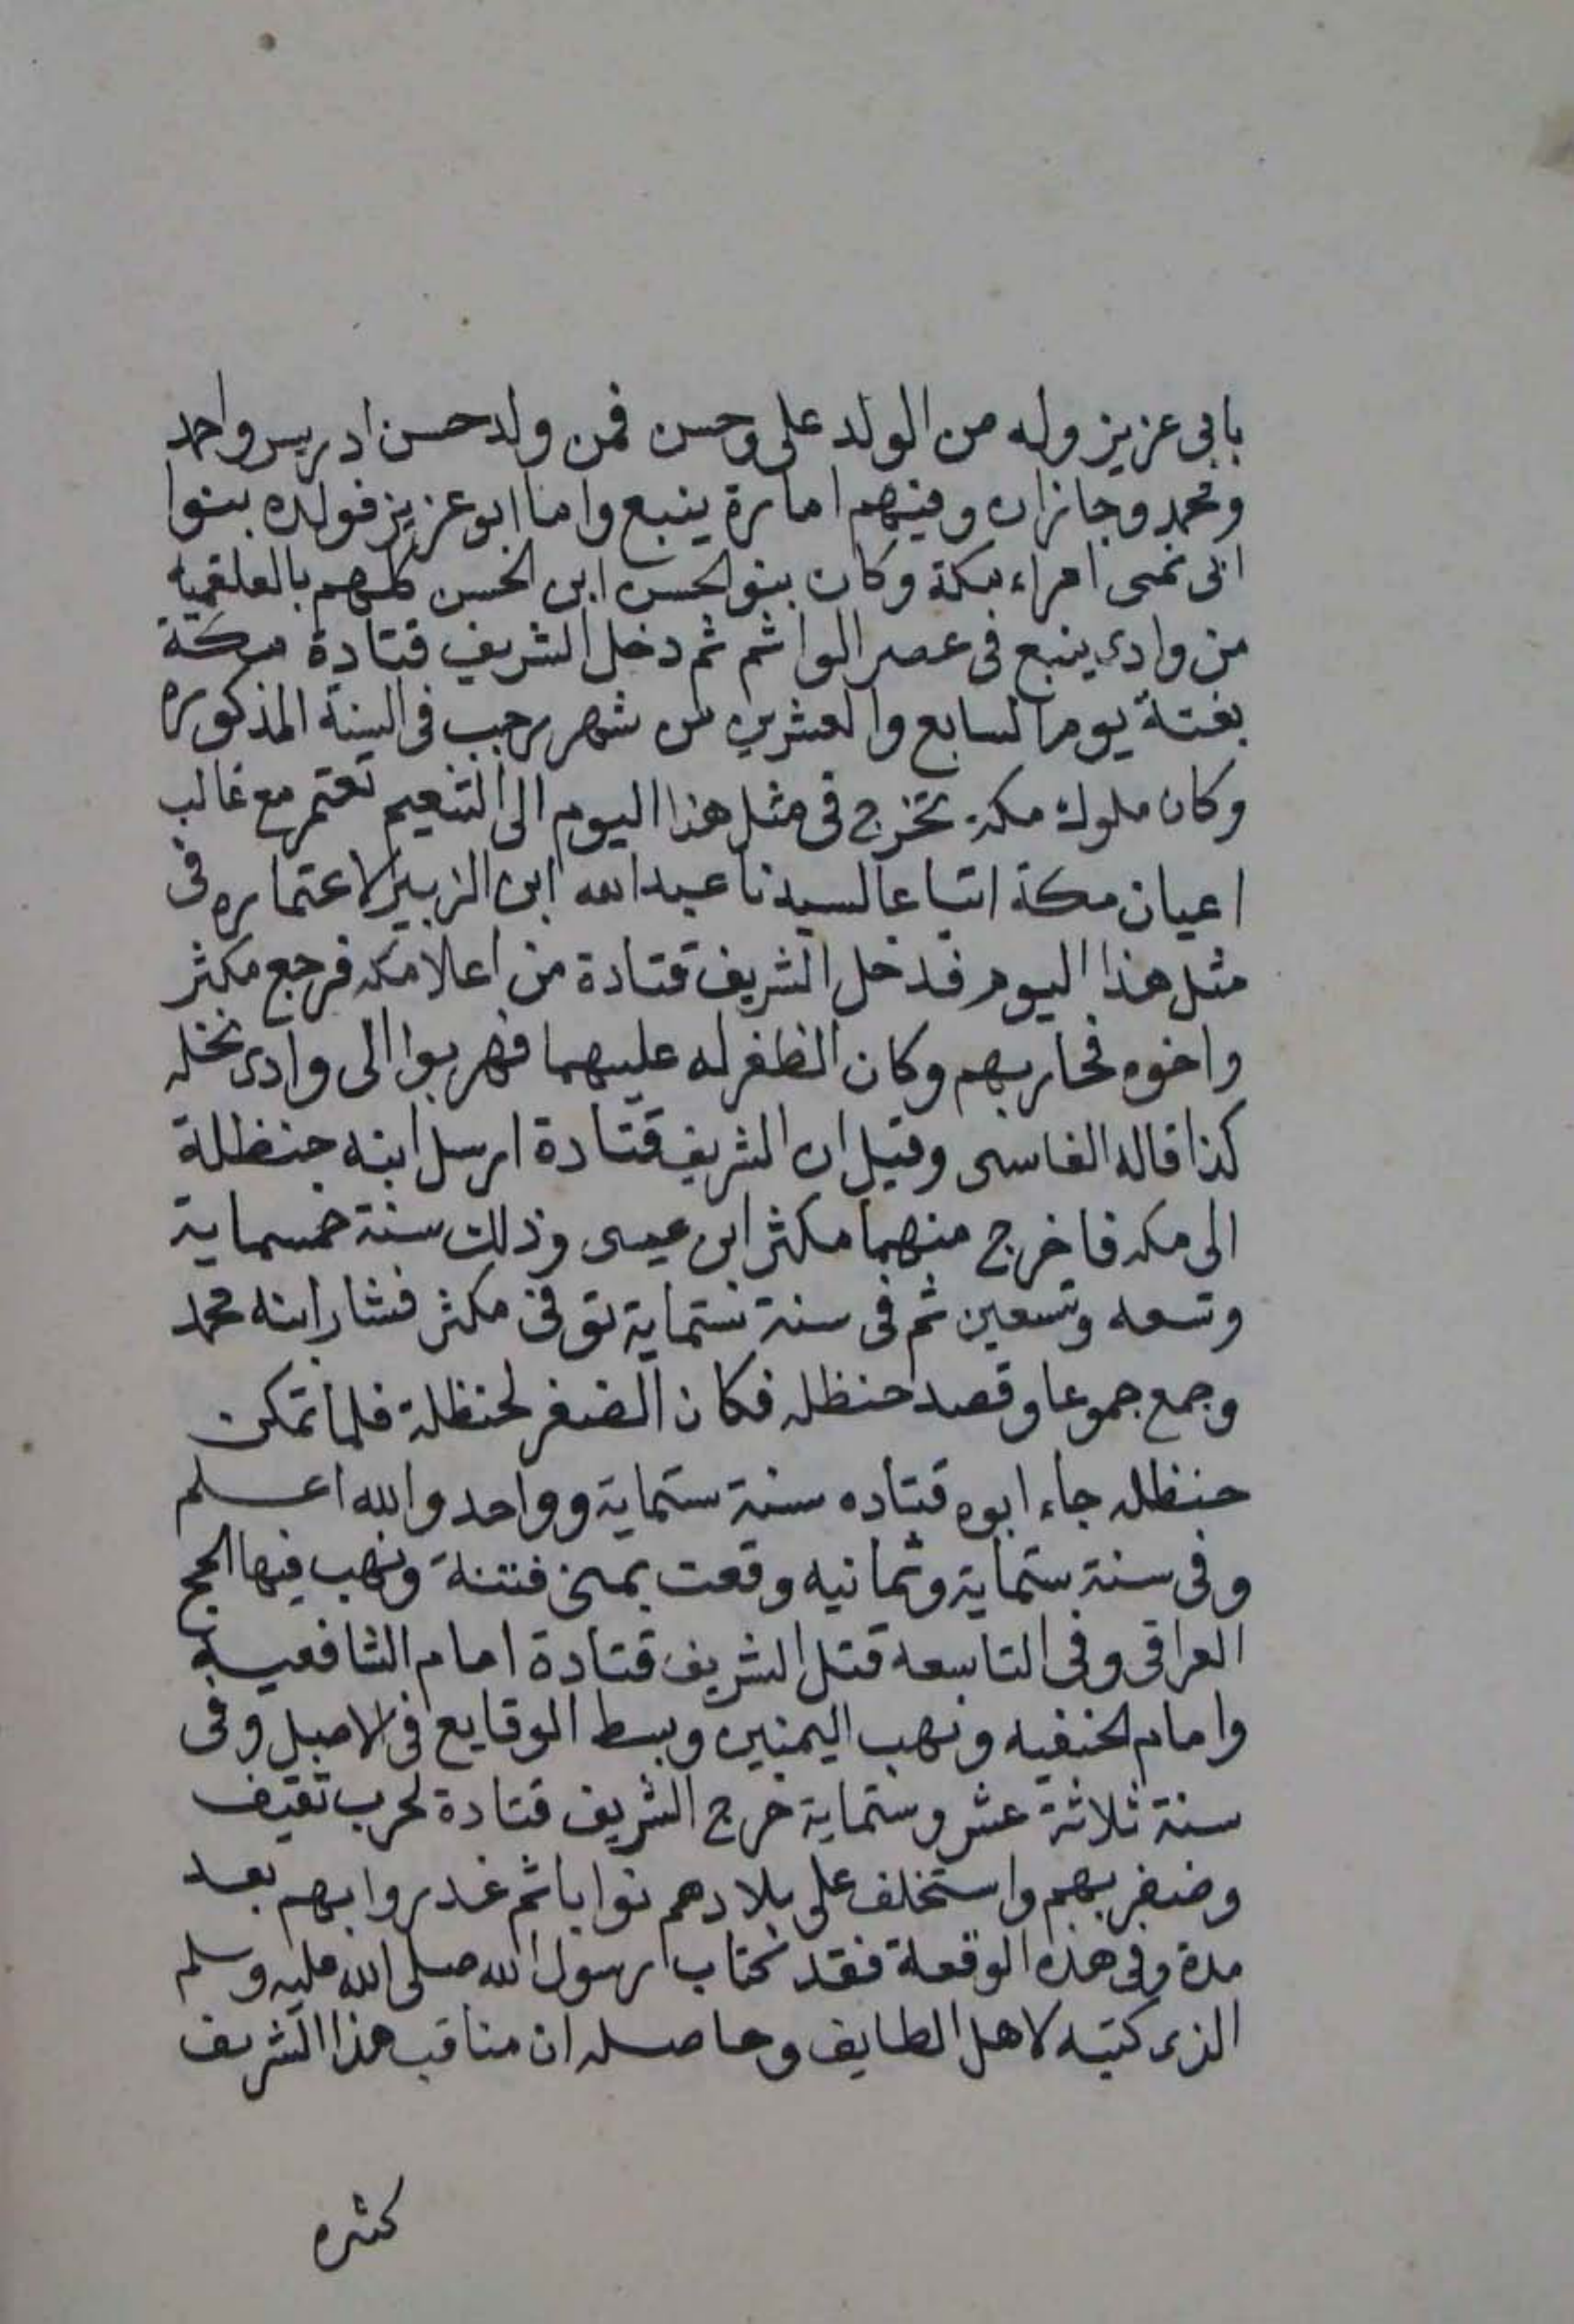 بابى عزيز وله من الولد على وحسن فمن ولد حسن ادريس واحمد
ومحمد وجازان وفيهم امارة ينبع واما ابو عزيز فولده بنوا
ابى نمى امراء بمكة وكان بنو الحسن ابن الحسن كلهم بالعلقميه
من وادى ينبع فى عصر الواثم ثم دخل الشريف قتادة مكة
بغتة يوم السابع والعشرين من شهر رجب فى السنة المذكوره
وكان ملوك مكة تخرج فى مثل هذا اليوم الى التنعيم تعتمر مع غالب
اعيان مكة اتباعا لسيدنا عبد الله ابن الزبير لاعتماره فى
مثل هذا اليوم فدخل الشريف قتادة من اعلا مكه فرجع مكثر
واخوه فحاربهم وكان الظفر له عليهما فهربوا الى وادى نخله
كذا قاله الفاسى وقيل ان الشريف قتادة ارسل ابنه حنظلة
الى مكه فاخرج منهما مكثر ابن عيسى وذلك سنة خمسماية
وتسعه وتسعين ثم فى سنة ستماية توفى مكثر فثار ابنه محمد
وجمع جموعا وقصد حنظله فكان الضفر لحنظلة فلما تمكن
حنظله جاء ابوه قتاده سنة ستماية وواحد والله اعلم
وفى سنة ستماية وثمانيه وقعت بمنى فتنة ونهب فيها الحج
العراقى وفى التاسعه قتل الشريف قتادة امام الشافعيه
وامام الحنفيه ونهب اليمنين وبسط الوقايع فى الاصل وفى
سنة ثلاثة عشر وستماية خرج الشريف قتادة لحرب ثقيف
وضفر بهم واستخلف على بلادهم نوابا ثم غدروا بهم بعد
مدة وفى هذه الوقعة فقد كتاب رسول الله صلى الله عليه وسلم
الذى كتبه لاهل الطايف وحاصله ان مناقب هذا الشريف
كثيره